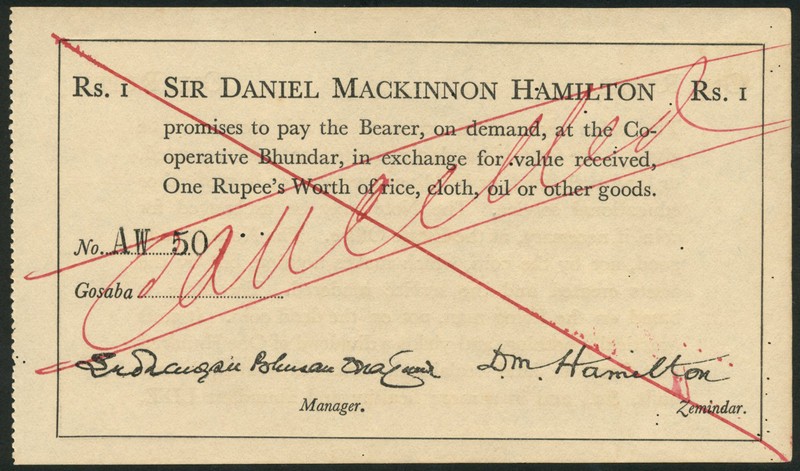 Rs. 1 SIR DANIEL MACKINNON HAMILTON Rs. 1
promises to pay the Bearer, on demand, at the Co-
operative Bhundar, in exchange for value received,
One Rupee's Worth of rice, cloth, oil or other goods.
Cancelled
No. AW 50
Gosaba
Bhusan DM. Hamilton
Manager. Zemindar.